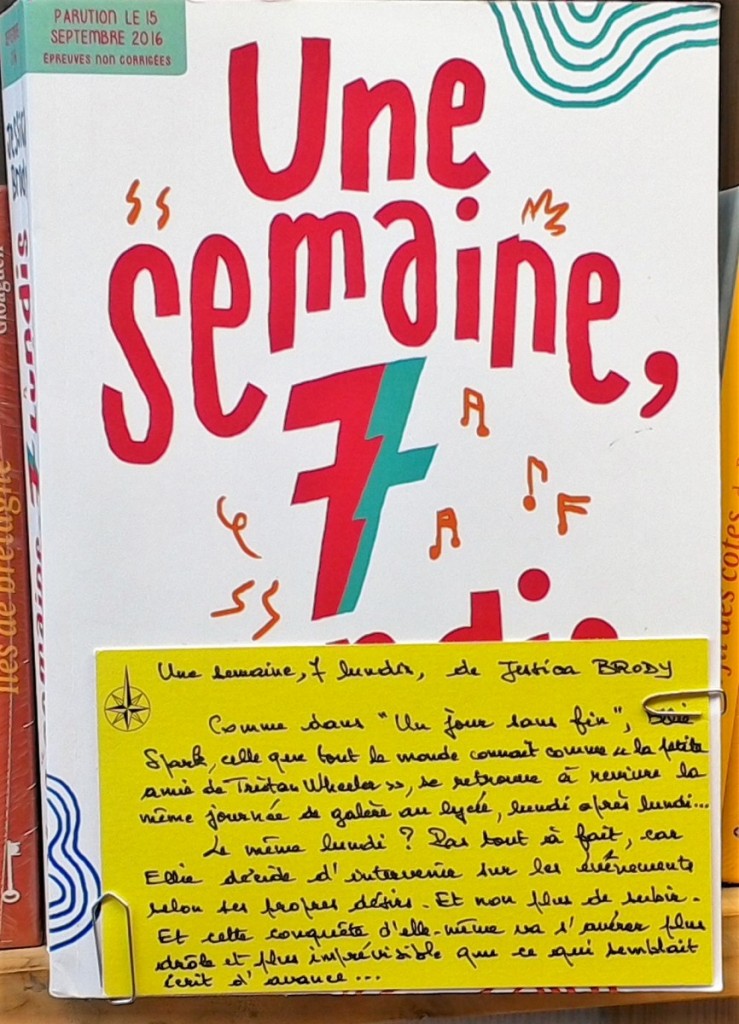 PARUTION LE 15
SEPTEMBRE 2016
ÉPREUVES NON CORRIGÉES
Une
semaine,
7
Une semaine, 7 lundis, de Jessica BRODY
Comme dans "Un jour sans fin", Ellie
Spark, celle que tout le monde connait comme « la petite
amie de Tristan Wheeler », se retrouve à revivre la
même journée de galère au lycée, lundi après lundi...
Le même lundi ? Pas tout à fait, car
Ellie décide d'intervenir sur les événements
selon ses propres désirs. Et non plus de subir.
Et cette conquête d'elle-même va s'avérer plus
drôle et plus imprévisible que ce qui semblait
écrit d'avance...
Jessica
Brody
semaine, 7 lundis
Gloaguen
Îles de bretagne
des côtes